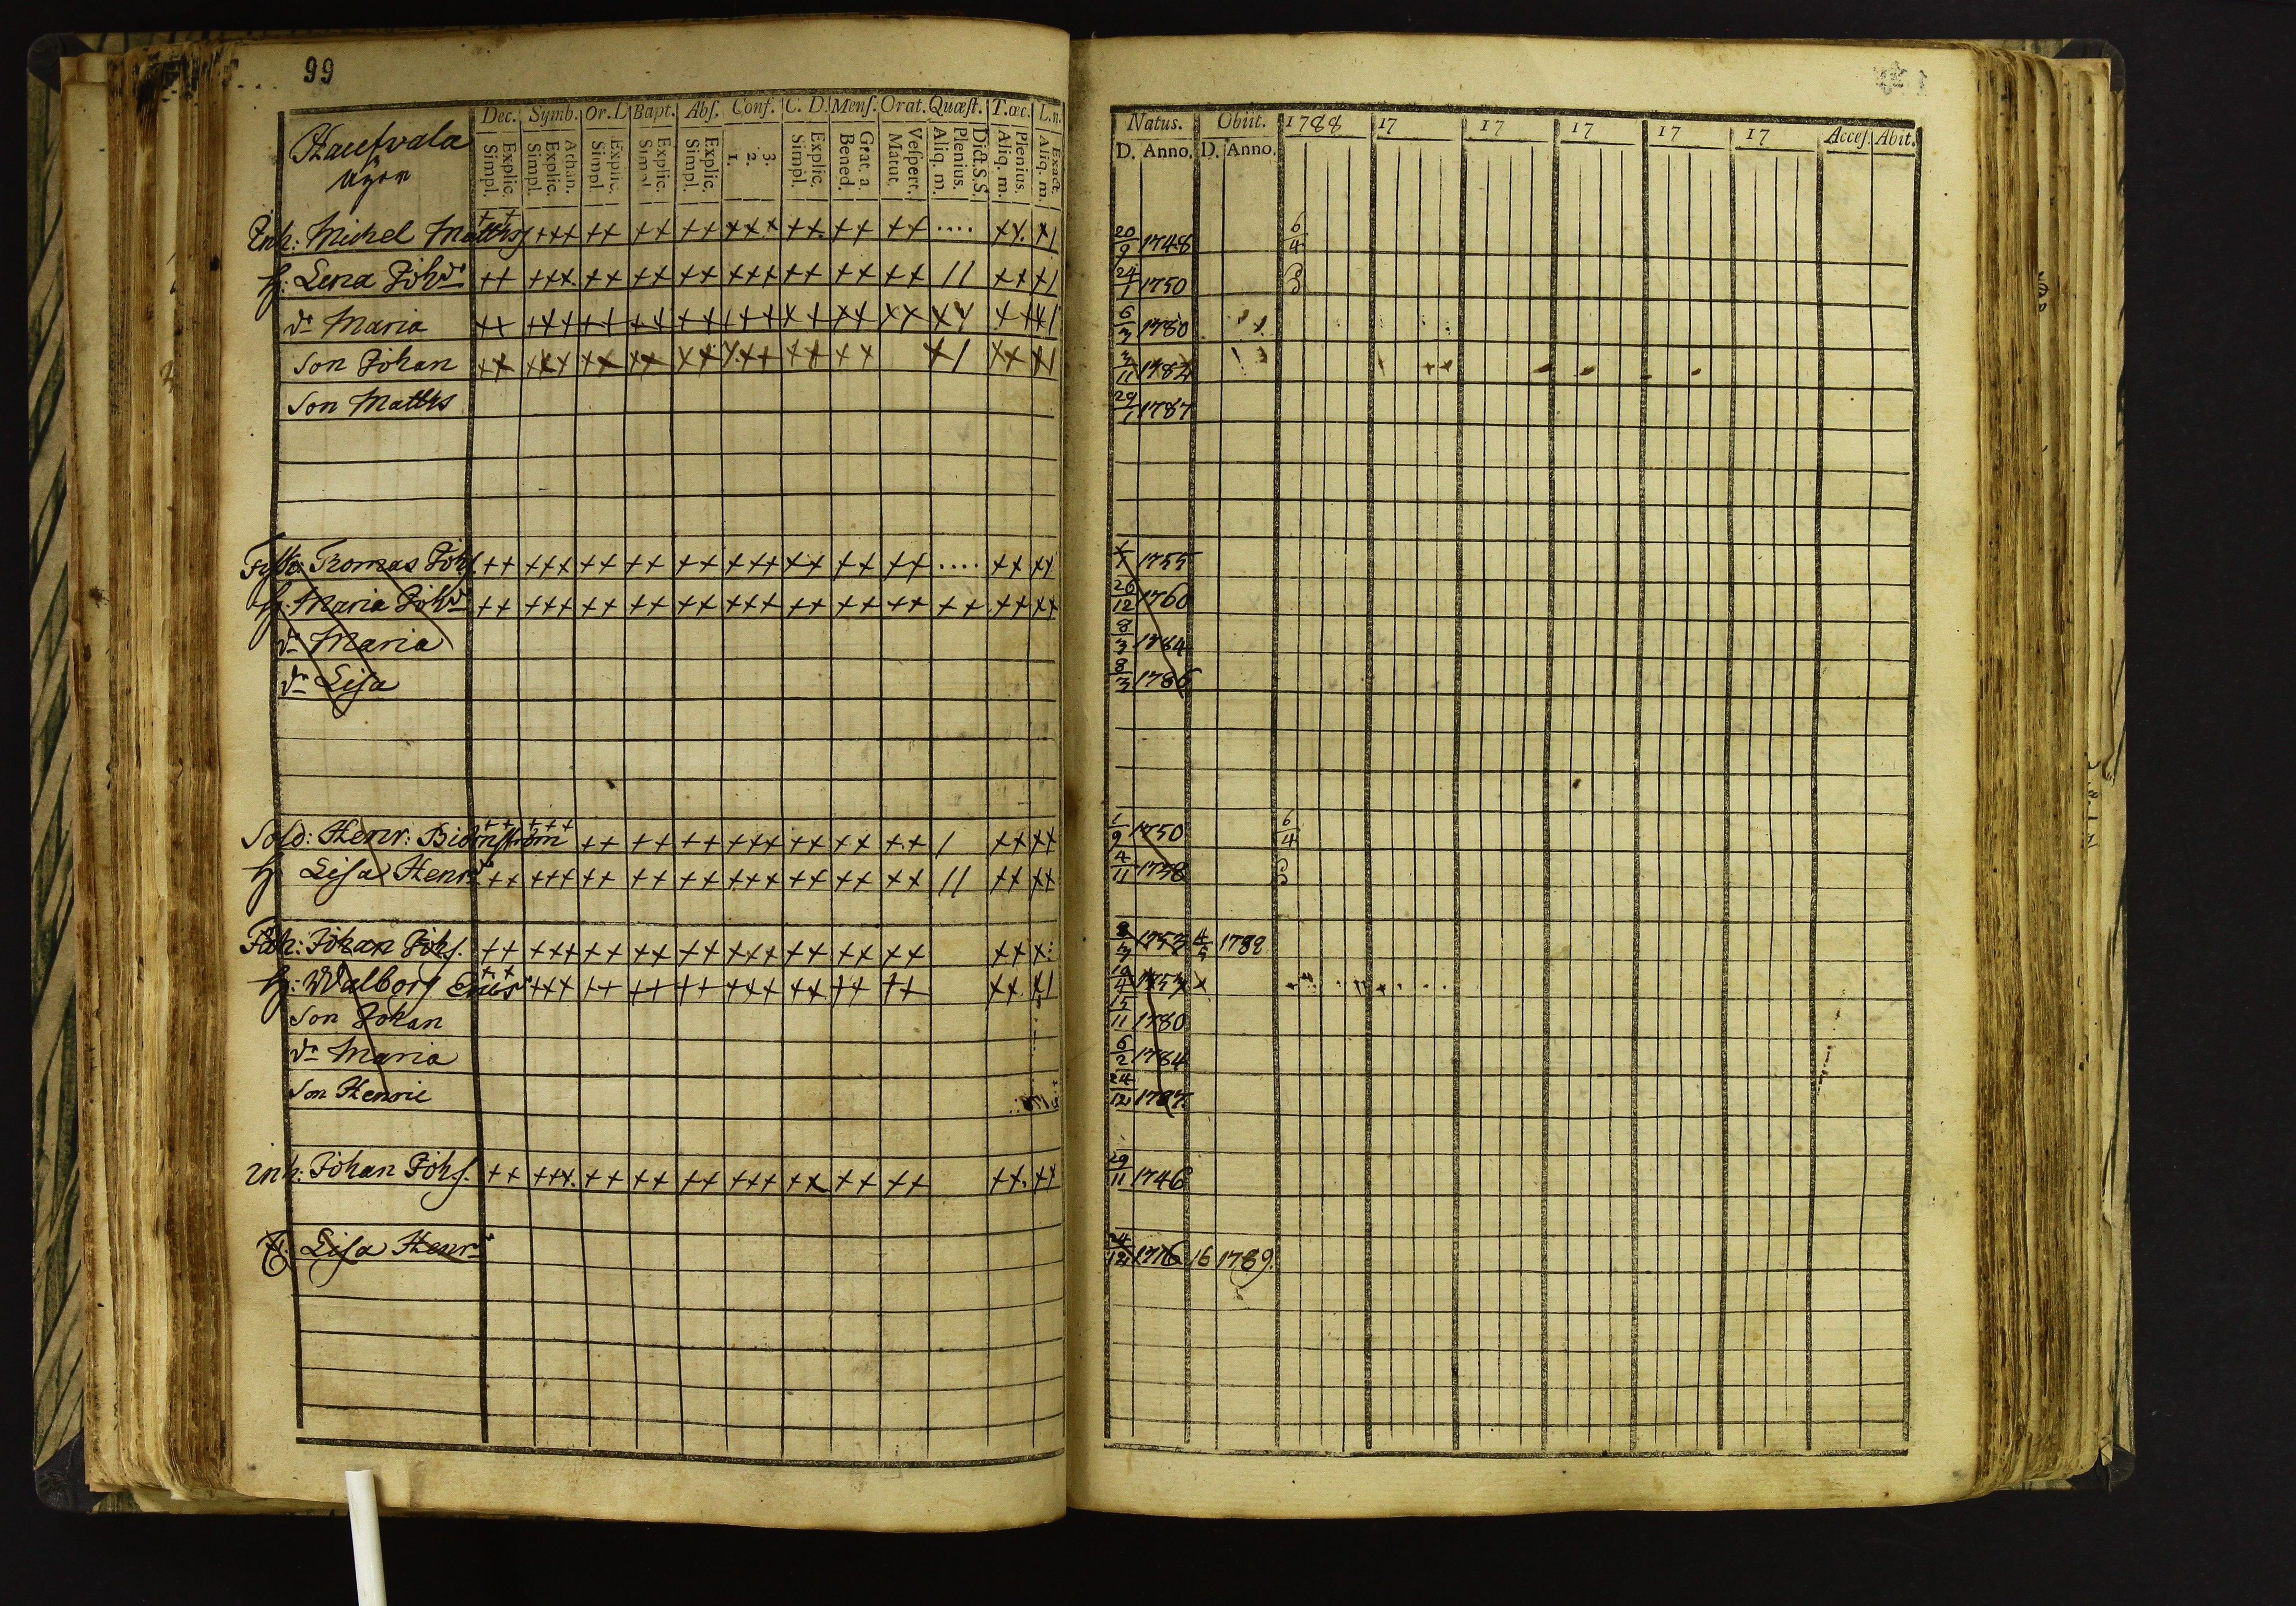 99
Dec. Symb. Or. D Bapt. Abs. Conf. C. D. Mens. Orat. Quæst. T.œc. L.n.
Simpl. Explic. Simpl. Explic. Athan. Simpl. Explic. Simpl. Explic. Simpl. Explic. 1. 2. 3. Simpl. Explic. Bened. Grat. a. Matut. Vespert. Aliq. m. Plenius. Dict. S. S. Aliq. m. Plenius. Aliq. m. Exact.
Natus. Obiit. 1788 17 17 17 17 17 Acces. Abit.
D. Anno. D. Anno.
Inh: Michel Matths ++ +++ ++ ++ ++ +++ ++ ++ ++ .... ++ +/ 20/9 1748 6/4
h: Lena Joh dr ++ +++ ++ ++ ++ +++ ++ ++ ++ // ++ +/ 24/1 1750
dr Maria ++ +++ ++ ++ ++ +++ ++ ++ ++ ++ ++ +/ 6/3 1780
Son Johan ++ +++ ++ ++ ++ +++ ++ ++ +/ ++ +/ 3/11 1782
Son Matths 29/1 1787
Thomas Johs. ++ +++ ++ ++ ++ +++ ++ ++ ++ .... ++ ++ 1755
h: Maria Joh dr ++ +++ ++ ++ ++ +++ ++ ++ ++ ++ ++ ++ 26/12 1760
dr Maria 8/3 1784
dr Lisa 8/3 1786
Sold: Henr: Biörnström ++ +++ ++ ++ ++ +++ ++ ++ ++ / ++ ++ 1/9 1750 6/4
h Lisa Henr dr ++ +++ ++ ++ ++ +++ ++ ++ ++ // ++ ++ 4/11 1738
Inh: Johan Johs. ++ +++ ++ ++ ++ +++ ++ ++ ++ ++ +: 1753 1788
h: Walborg Erics dr ++ +++ ++ ++ ++ +++ ++ ++ ++ ++ +/ 19/4 1753
Son Johan 15/11 1780
dr Maria 6/2 1784
Son Henric 24/12 1787.
inh: Johan Johs. ++ +++ ++ ++ ++ +++ ++ ++ ++ ++ ++ 29/11 1746
Lisa Henr dr 24/12 16 1789.